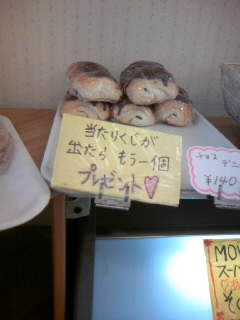 当たりくじが
出たら もう一個
プレゼント♡
チョコ
デニ
¥140
MOW
スー